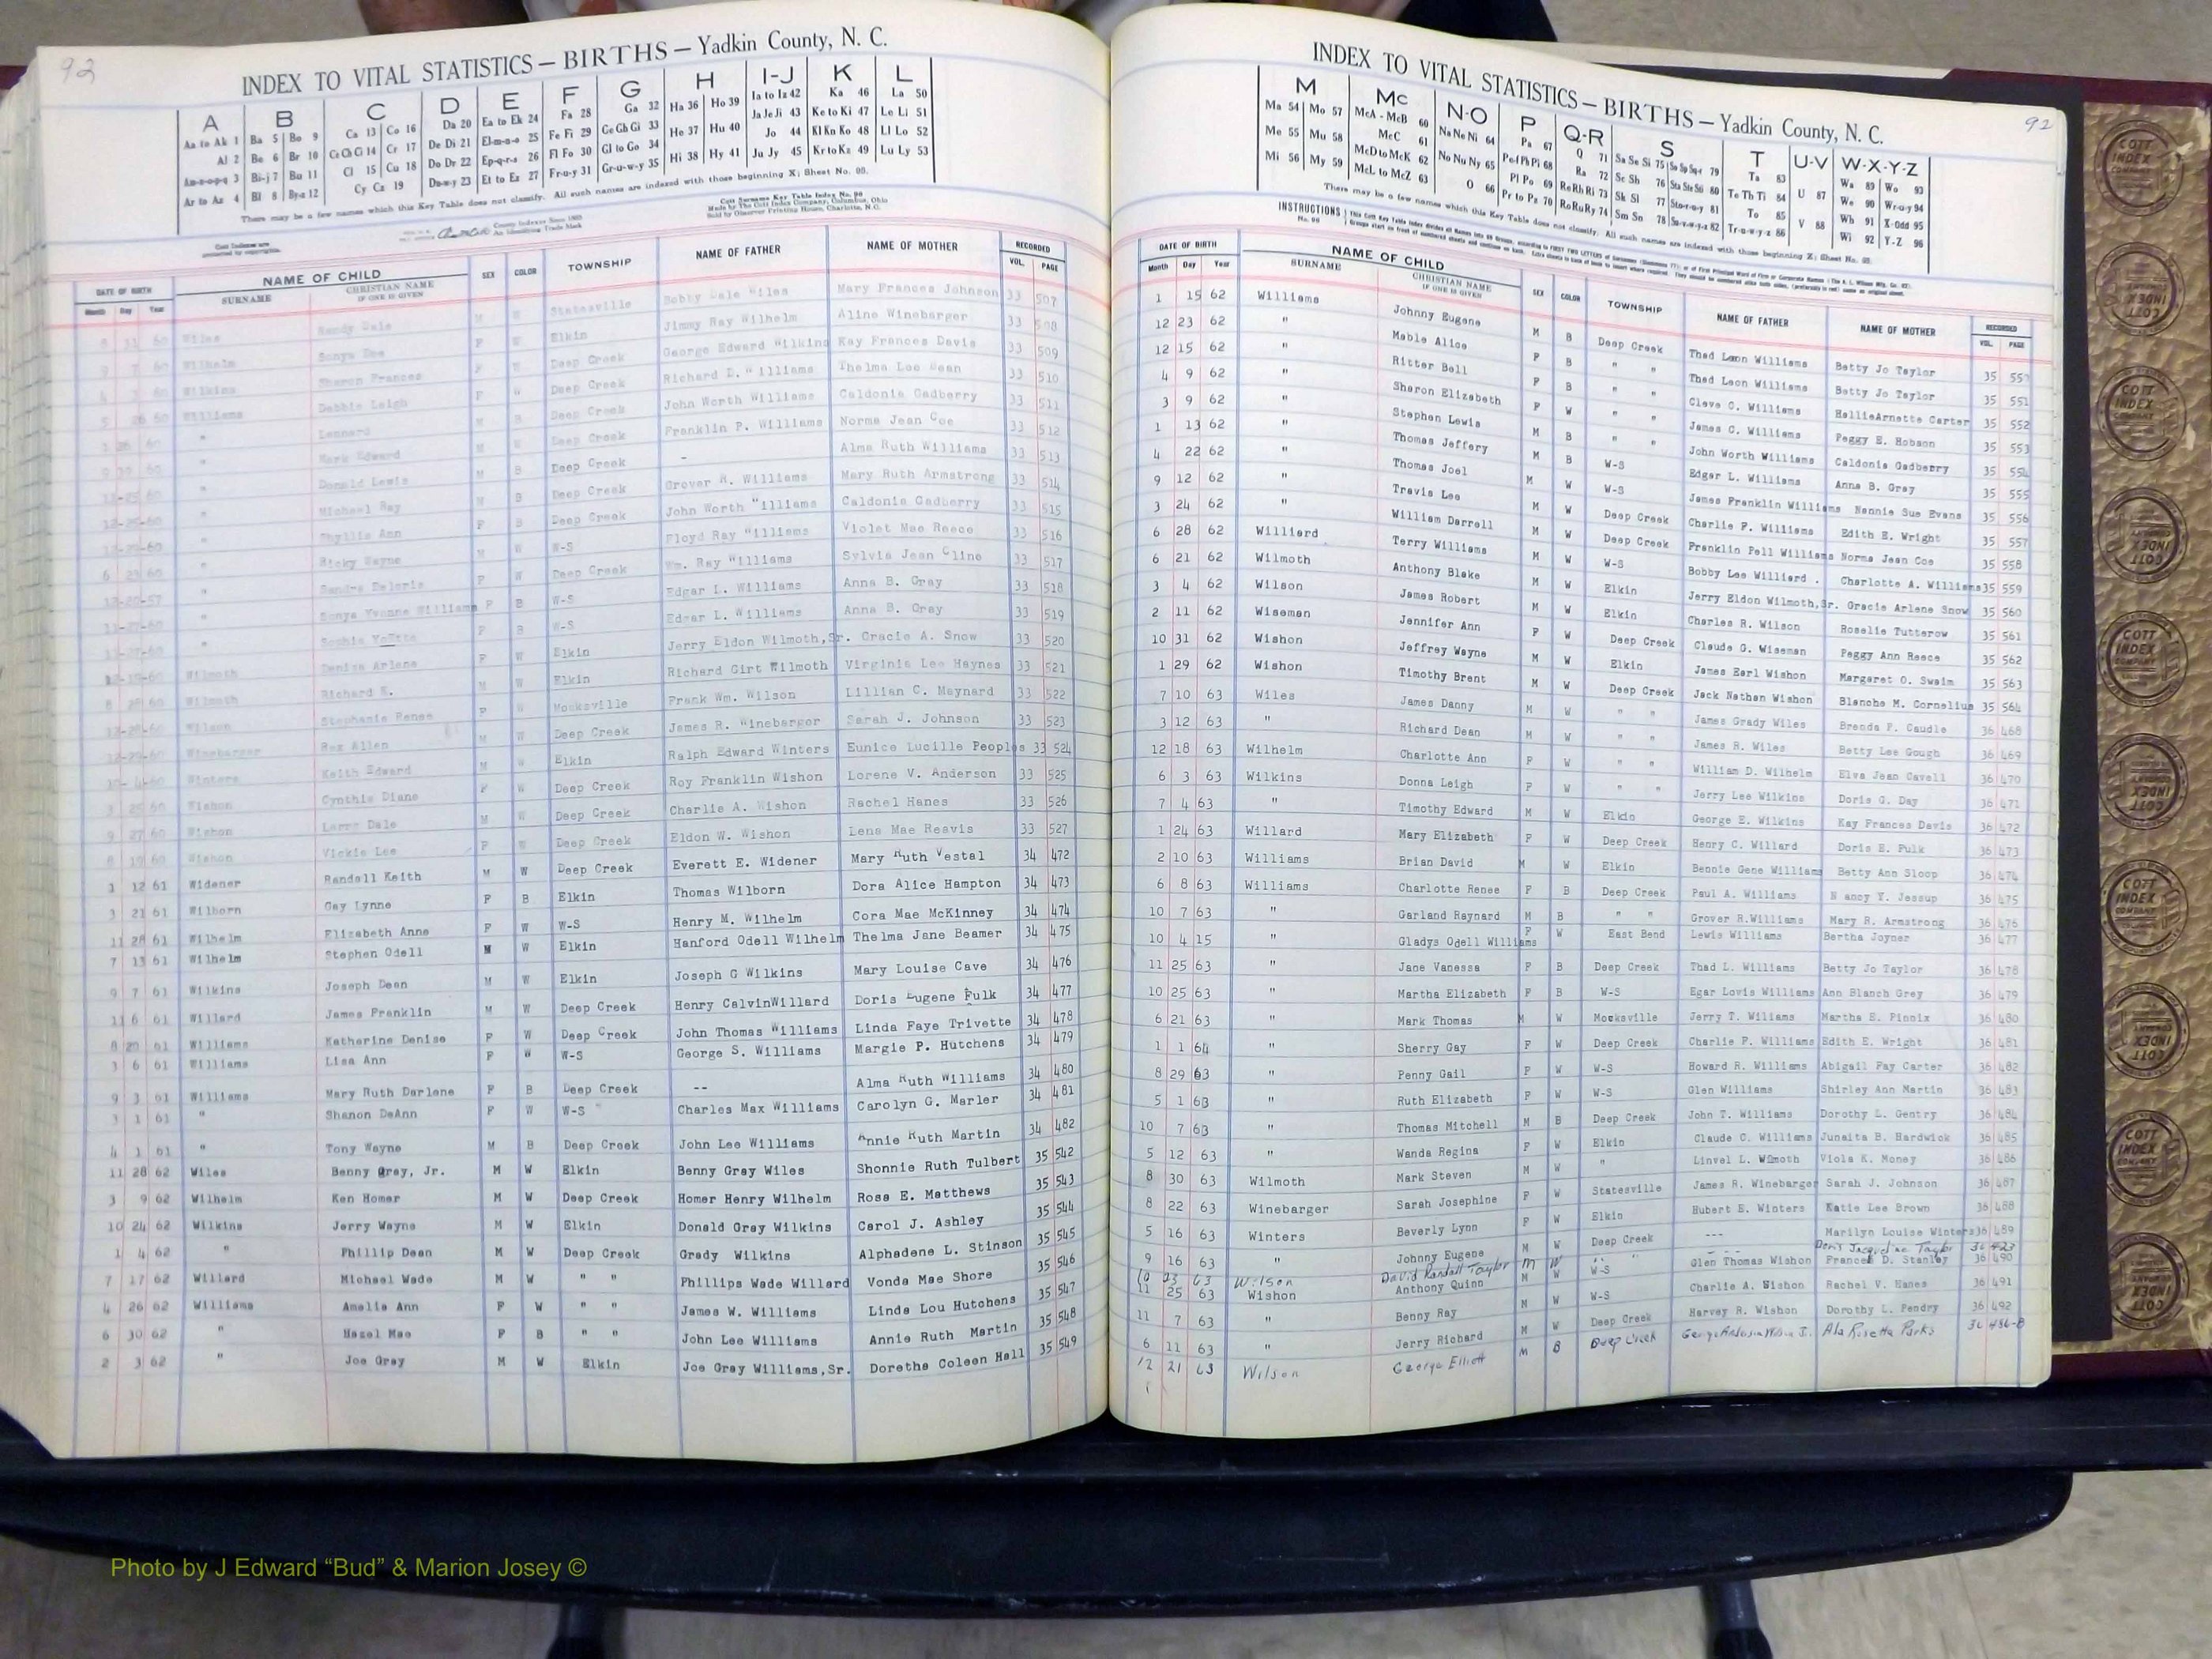 92
INDEX TO VITAL STATISTICS — BIRTHS — Yadkin County, N. C.
A B C D E F G H I-J K L
Aa to Ak 1 Ba 5 Bo 9 Ca 13 Co 16 Da 20 Ea to Ek 24 Fa 28 Ga 32 Ha 36 Ho 39 Ia to Iz 42 Ka 46 La 50
Al 2 Be 6 Br 10 Ce Ch Ci 14 Cr 17 De Di 21 El-m-n-o 25 Fe Fi 29 Ge Gh Gi 33 He 37 Hu 40 Ja Je Ji 43 Ke to Ki 47 Le Li 51
Am-n-o-p-q 3 Bi-j 7 Bu 11 Cl 15 Cu 18 Do Dr 22 Ep-q-r-s 26 Fl Fo 30 Gl to Go 34 Hi 38 Hy 41 Jo 44 Kl Kn Ko 48 Ll Lo 52
Ar to Az 4 Bl 8 By-z 12 Cy Cz 19 Du-w-y 23 Et to Ez 27 Fr-u-y 31 Gr-u-w-y 35 Ju Jy 45 Kr to Kz 49 Lu Ly 53
There may be a few names which this Key Table does not classify. All such names are indexed with those beginning X; Sheet No. 95.
DATE OF BIRTH NAME OF CHILD SEX COLOR TOWNSHIP NAME OF FATHER NAME OF MOTHER RECORDED
Month Day Year SURNAME CHRISTIAN NAME IF ONE IS GIVEN VOL. PAGE
Wiles Randy Dale M W Statesville Bobby Dale Wiles Mary Frances Johnson 33 507
Wilhelm Sonya Dee F W Elkin Jimmy Ray Wilhelm Aline Winebarger 33 508
Wilkins Sharon Frances F W Deep Creek George Edward Wilkins Kay Frances Davis 33 509
Williams Debbie Leigh F W Deep Creek Richard D. Williams Thelma Lee Dean 33 510
" Lennard M B Deep Creek John Worth Williams Caldonia Gadberry 33 511
" Mark Edward M W Deep Creek Franklin P. Williams Norma Jean Coe 33 512
" Donald Lewis M B Deep Creek - Alma Ruth Williams 33 513
" Michael Ray M B Deep Creek Grover R. Williams Mary Ruth Armstrong 33 514
" Phyllis Ann F B Deep Creek John Worth Williams Caldonia Gadberry 33 515
" Ricky Wayne M W W-S Floyd Ray Williams Violet Mae Reece 33 516
" Sandra Deloris F W Deep Creek Wm. Ray Williams Sylvia Jean Cline 33 517
" Sonya Yvonne Williams F B W-S Edgar L. Williams Anna B. Gray 33 518
" Sophia F B W-S Edgar L. Williams Anna B. Gray 33 519
Wilmoth Denisa Arlene F W Elkin Jerry Eldon Wilmoth,Sr. Gracie A. Snow 33 520
Wilmoth Richard K. M W Elkin Richard Girt Wilmoth Virginia Lee Haynes 33 521
Wilson Stephanie Renee F W Mocksville Frank Wm. Wilson Lillian C. Maynard 33 522
Winebarger Rex Allen M W Deep Creek James R. Winebarger Sarah J. Johnson 33 523
Winters Keith Edward M W Elkin Ralph Edward Winters Eunice Lucille Peoples 33 524
Wishon Cynthia Diane F W Deep Creek Roy Franklin Wishon Lorene V. Anderson 33 525
Wishon Dale M W Deep Creek Charlie A. Wishon Rachel Hanes 33 526
Wishon Vickie Lee F W Deep Creek Eldon W. Wishon Lena Mae Reavis 33 527
1 12 61 Widener Randall Keith M W Deep Creek Everett E. Widener Mary Ruth Vestal 34 472
3 21 61 Wilborn Gay Lynne F B Elkin Thomas Wilborn Dora Alice Hampton 34 473
11 28 61 Wilhelm Elizabeth Anne F W W-S Henry M. Wilhelm Cora Mae McKinney 34 474
7 13 61 Wilhelm Stephen Odell M W Elkin Hanford Odell Wilhelm Thelma Jane Beamer 34 475
9 7 61 Wilkins Joseph Dean M W Elkin Joseph G Wilkins Mary Louise Cave 34 476
11 6 61 Willard James Franklin M W Deep Creek Henry CalvinWillard Doris Eugene Fulk 34 477
8 20 61 Williams Katherine Denise F W Deep Creek John Thomas Williams Linda Faye Trivette 34 478
3 6 61 Williams Lisa Ann F W W-S George S. Williams Margie P. Hutchens 34 479
9 3 61 Williams Mary Ruth Darlene F B Deep Creek -- Alma Ruth Williams 34 480
3 1 61 " Shanon DeAnn F W W-S Charles Max Williams Carolyn G. Marler 34 481
4 1 61 " Tony Wayne M B Deep Creek John Lee Williams Annie Ruth Martin 34 482
11 28 62 Wiles Benny Gray, Jr. M W Elkin Benny Gray Wiles Shonnie Ruth Tulbert 35 542
3 9 62 Wilhelm Ken Homer M W Deep Creek Homer Henry Wilhelm Rosa E. Matthews 35 543
10 24 62 Wilkins Jerry Wayne M W Elkin Donald Gray Wilkins Carol J. Ashley 35 544
1 4 62 " Phillip Dean M W Deep Creek Grady Wilkins Alphadene L. Stinson 35 545
7 17 62 Willard Michael Wade M W " " Phillips Wade Willard Vonda Mae Shore 35 546
4 26 62 Williams Amelia Ann F W " " James W. Williams Linda Lou Hutchens 35 547
6 30 62 " Hazel Mae F B " " John Lee Williams Annie Ruth Martin 35 548
2 3 62 " Joe Gray M W Elkin Joe Gray Williams,Sr. Doretha Coleen Hall 35 549
92
INDEX TO VITAL STATISTICS — BIRTHS — Yadkin County, N. C.
M Mc N-O P Q-R S T U-V W-X-Y-Z
Ma 54 Mo 57 McA - McB 60 Na Ne Ni 64 Pa 67 Q 71 Sa Se Si 75 So Sp Sq-r 79 Ta 83 U 87 Wa 89 Wo 93
Me 55 Mu 58 McC 61 No Nu Ny 65 Pe-f Ph Pi 68 Ra 72 Sc Sh 76 Sta Ste Sti 80 Te Th Ti 84 V 88 We 90 Wr-u-y 94
Mi 56 My 59 McD to McK 62 O 66 Pl Po 69 Re Rh Ri 73 Sk Sl 77 Sto-r-u-y 81 To 85 Wh 91 X-Odd 95
McL to McZ 63 Pr to Pz 70 Ro Ru Ry 74 Sm Sn 78 Su-v-w-y-z 82 Tr-u-w-y-z 86 Wi 92 Y-Z 96
There may be a few names which this Key Table does not classify. All such names are indexed with those beginning X; Sheet No. 95.
INSTRUCTIONS
DATE OF BIRTH NAME OF CHILD SEX COLOR TOWNSHIP NAME OF FATHER NAME OF MOTHER RECORDED
Month Day Year SURNAME CHRISTIAN NAME IF ONE IS GIVEN VOL. PAGE
1 15 62 Williams Johnny Eugene M B Deep Creek Thad Leon Williams Betty Jo Taylor 35 550
12 23 62 " Mable Alice F B " " Thad Leon Williams Betty Jo Taylor 35 551
12 15 62 " Ritter Bell F B " " Cleve C. Williams HallieArnette Carter 35 552
4 9 62 " Sharon Elizabeth F W " " James C. Williams Peggy E. Hobson 35 553
3 9 62 " Stephen Lewis M B " " John Worth Williams Caldonia Gadberry 35 554
1 13 62 " Thomas Jeffery M B W-S Edgar L. Williams Anna B. Gray 35 555
4 22 62 " Thomas Joel M W W-S James Franklin Williams Nannie Sue Evans 35 556
9 12 62 " Travis Lee M W Deep Creek Charlie F. Williams Edith E. Wright 35 557
3 24 62 " William Darrell M W Deep Creek Franklin Pell Williams Norma Jean Coe 35 558
6 28 62 Williard Terry Williams M W W-S Bobby Lee Williard . Charlotte A. Williams 35 559
6 21 62 Wilmoth Anthony Blake M W Elkin Jerry Eldon Wilmoth,Sr. Gracie Arlene Snow 35 560
3 4 62 Wilson James Robert M W Elkin Charles R. Wilson Roselie Tutterow 35 561
2 11 62 Wiseman Jennifer Ann F W Deep Creek Claude G. Wiseman Peggy Ann Reece 35 562
10 31 62 Wishon Jeffrey Wayne M W Elkin James Earl Wishon Margaret O. Swaim 35 563
1 29 62 Wishon Timothy Brent M W Deep Creek Jack Nathan Wishon Blanche M. Cornelius 35 564
7 10 63 Wiles James Danny M W " " James Grady Wiles Brenda F. Caudle 36 468
3 12 63 " Richard Dean M W " " James R. Wiles Betty Lee Gough 36 469
12 18 63 Wilhelm Charlotte Ann F W " " William D. Wilhelm Elva Jean Cavell 36 470
6 3 63 Wilkins Donna Leigh F W " " Jerry Lee Wilkins Doris G. Day 36 471
7 4 63 " Timothy Edward M W Elkin George E. Wilkins Kay Frances Davis 36 472
1 24 63 Willard Mary Elizabeth F W Deep Creek Henry C. Willard Doris E. Fulk 36 473
2 10 63 Williams Brian David M W Elkin Bennie Gene Williams Betty Ann Sloop 36 474
6 8 63 Williams Charlotte Renee F B Deep Creek Paul A. Williams N ancy Y. Jessup 36 475
10 7 63 " Garland Raynard M B " " Grover R.Williams Mary R. Armstrong 36 476
10 4 15 " Gladys Odell Williams F W East Bend Lewis Williams Bertha Joyner 36 477
11 25 63 " Jane Vanessa F B Deep Creek Thad L. Williams Betty Jo Taylor 36 478
10 25 63 " Martha Elizabeth F B W-S Egar Lovis Williams Ann Blanch Grey 36 479
6 21 63 " Mark Thomas M W Mocksville Jerry T. Wiliams Martha E. Pinnix 36 480
1 1 64 " Sherry Gay F W Deep Creek Charlie F. Williams Edith E. Wright 36 481
8 29 63 " Penny Gail F W W-S Howard R. Williams Abigail Fay Carter 36 482
5 1 63 " Ruth Elizabeth F W W-S Glen Williams Shirley Ann Martin 36 483
10 7 63 " Thomas Mitchell M B Deep Creek John T. Williams Dorothy L. Gentry 36 484
5 12 63 " Wanda Regina F W Elkin Claude C. Williams Junaita B. Hardwick 36 485
8 30 63 Wilmoth Mark Steven M W " Linvel L. Wilmoth Viola K. Money 36 486
8 22 63 Winebarger Sarah Josephine F W Statesville James R. Winebarger Sarah J. Johnson 36 487
5 16 63 Winters Beverly Lynn F W Elkin Hubert E. Winters Katie Lee Brown 36 488
9 16 63 " Johnny Eugene M W Deep Creek --- Marilyn Louise Winters 36 489
10 23 63 Wilson David Randall Taylor M W " " --- Doris Jacqueline Taylor 36 423
11 25 63 Wishon Anthony Quinn M W W-S Glen Thomas Wishon Frances D. Stanley 36 490
11 7 63 " Benny Ray M W W-S Charlie A. Wishon Rachel V. Hanes 36 491
6 11 63 " Jerry Richard M W Deep Creek Harvey R. Wishon Dorothy L. Pendry 36 492
12 21 63 Wilson George Elliott M B Deep Creek George Wilson Jr. Ala Rosetta Parks 36 486-B
COTT INDEX COMPANY
Photo by J Edward “Bud” & Marion Josey ©